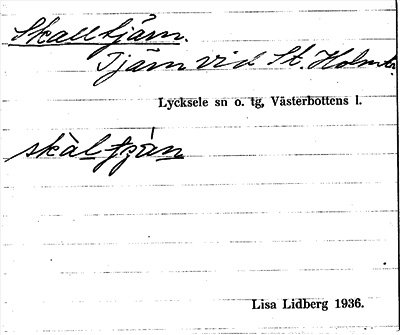 Skalltjärn.
Tjärn vid St. Holmtr.
Lycksele sn o. tg, Västerbottens l.
skàl-tjạ̈̀ṇ
Lisa Lidberg 1936.